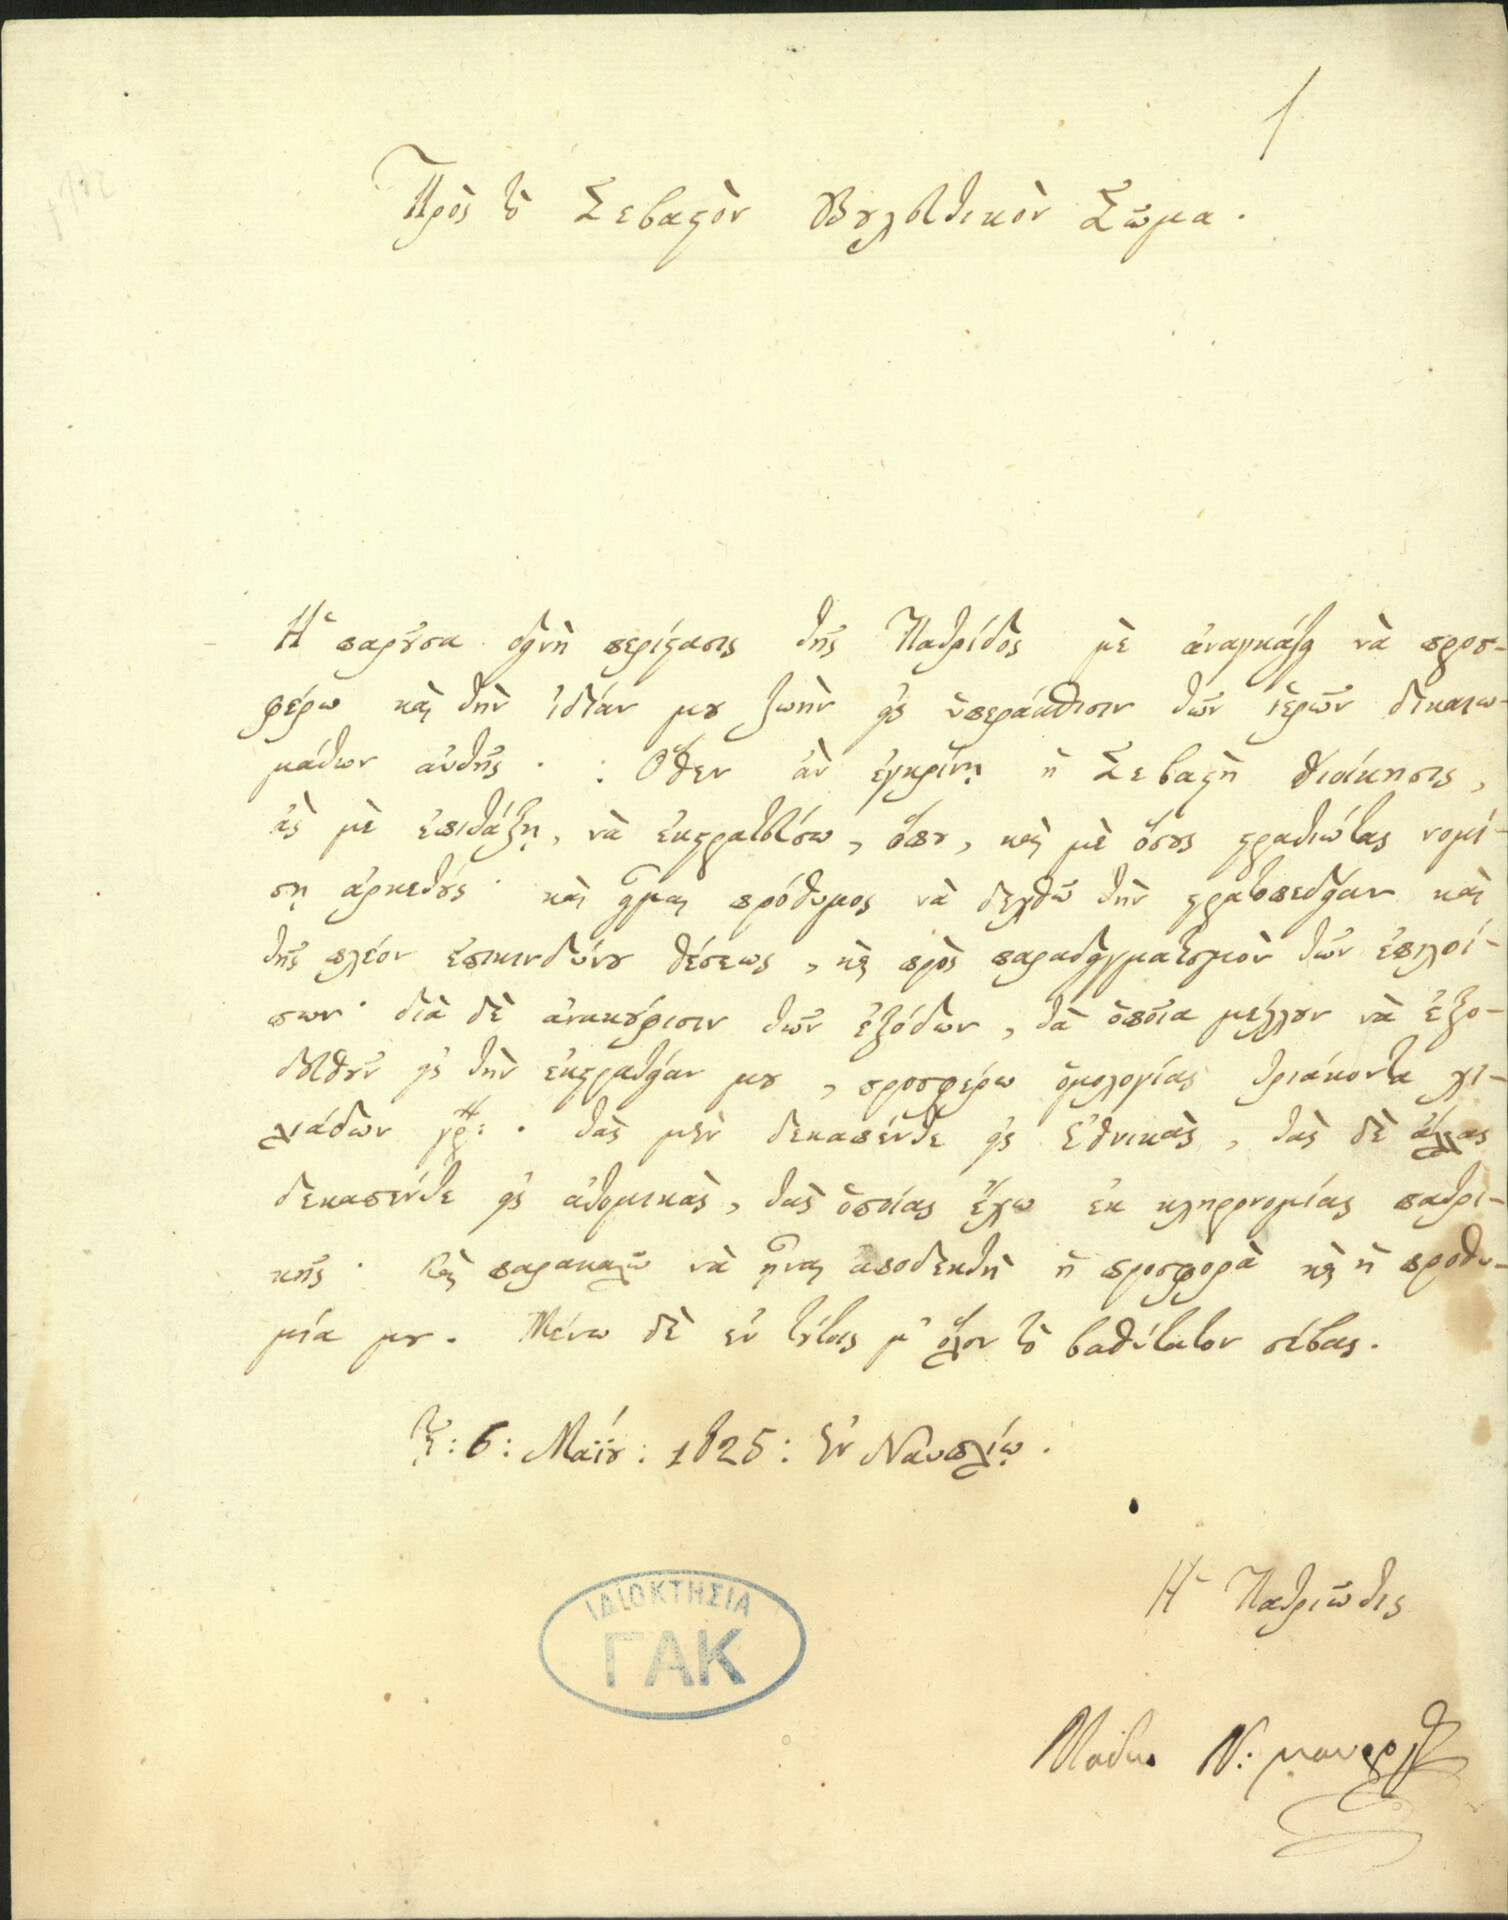 1
Πρὸς τὸ Σεβαστὸν Βουλευτικὸν Σῶμα.
Ἡ παροῦσα δεινὴ περίστασις τῆς Πατρίδος μὲ ἀναγκάζει νὰ προσ-
φέρω καὶ τὴν ἰδίαν μου ζωὴν εἰς ὑπεράσπισιν τῶν ἱερῶν δικαιω-
μάτων αὐτῆς· : Ὅθεν ἂν ἐγκρίνῃ ἡ Σεβαστὴ Διοίκησις,
ἂς μὲ ἐπιτάξῃ, νὰ ἐκστρατεύσω, ὅπου, καὶ μὲ ὅσους στρατιώτας νομί-
σῃ ἀρκετούς· καὶ εἶμαι πρόθυμος νὰ δεχθῶ τὴν στρατοπεδείαν καὶ
τῆς πλέον ἐπικινδύνου θέσεως, καὶ πρὸς παραδειγματισμὸν τῶν ἐπιλοί-
πων· διὰ δὲ ἀνακούφισιν τῶν ἐξόδων, τὰ ὁποῖα μέλλουν νὰ ἐξο-
δευθοῦν εἰς τὴν ἐκστρατείαν μου, προσφέρω ὁμολογίας τριάκοντα χι-
λιάδων γρ: · τὰς μὲν δεκαπέντε εἰς Ἐθνικὰς, τὰς δὲ ἄλλας
δεκαπέντε εἰς ἀτομικὰς, τὰς ὁποίας ἔχω ἐκ κληρονομίας πατρι-
κῆς· Καὶ παρακαλῶ νὰ ᾖναι ἀποδεκτὴ ἡ προσφορὰ καὶ ἡ προθυ-
μία μου. Μένω δὲ ἐν τούτοις μ' ὅλον τὸ βαθύτατον σέβας.
Τῇ: 6: Μαΐου: 1825: Ἐν Ναυπλίῳ.
Ἡ Πατριῶτις
Μαδω Ν: μαυρο
ΙΔΙΟΚΤΗΣΙΑ
ΓΑΚ